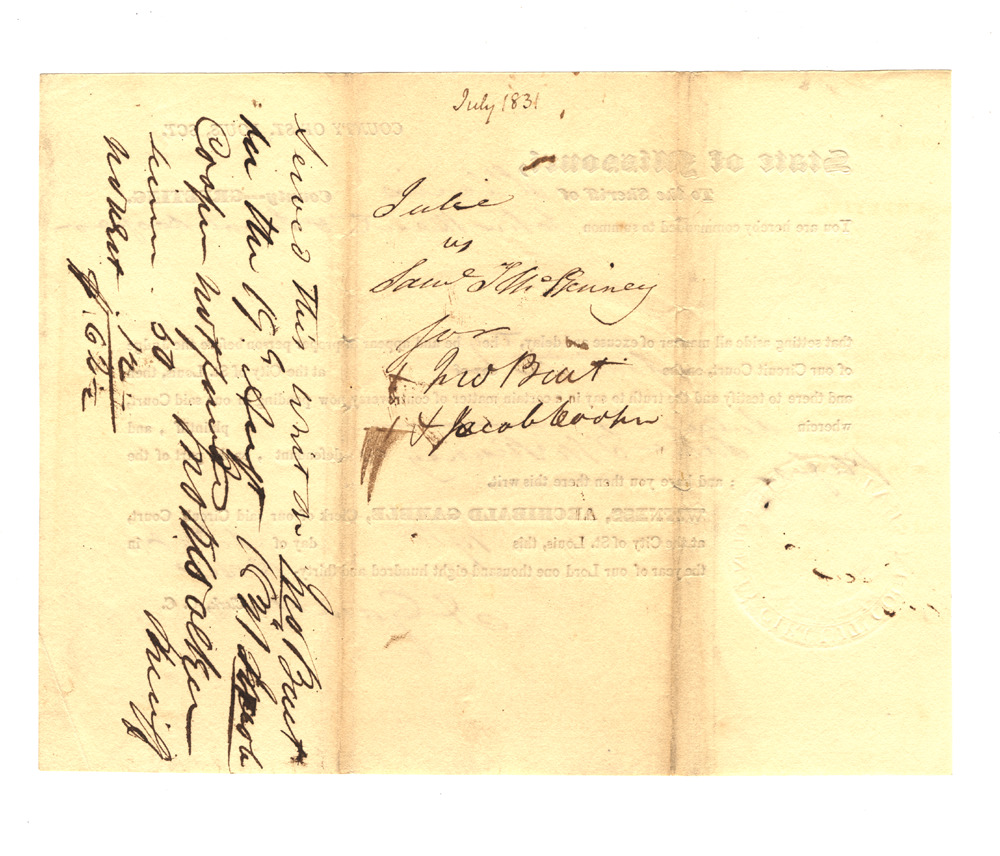 July 1831
Julie
vs
Saml T McKinney
for
Jno Bent
& Jacob Cooper
Served this writ on Jno Bent
on the 15th Sept 1831 Jacob
Cooper not found
Jno K Walker
Sheriff
serv. 50
non est 12½
$.62½
COUNTY OF ST. LOUIS, SCT.
State of Missouri,
To the Sheriff of County—GREETING.
You are hereby commanded to summon
that setting aside all manner of excuse and delay, he be and appear in proper person before the
of our Circuit Court, on the at the City of St. Louis, then
and there to testify and the truth to say in a certain matter of controversy now pending in our said Court,
wherein plaintiff, and
defendant, on the part of the
; and have you then there this writ.
WITNESS, ARCHIBALD GAMBLE, Clerk of our said Circuit Court,
at the City of St. Louis, this day of in
the year of our Lord one thousand eight hundred and thirty